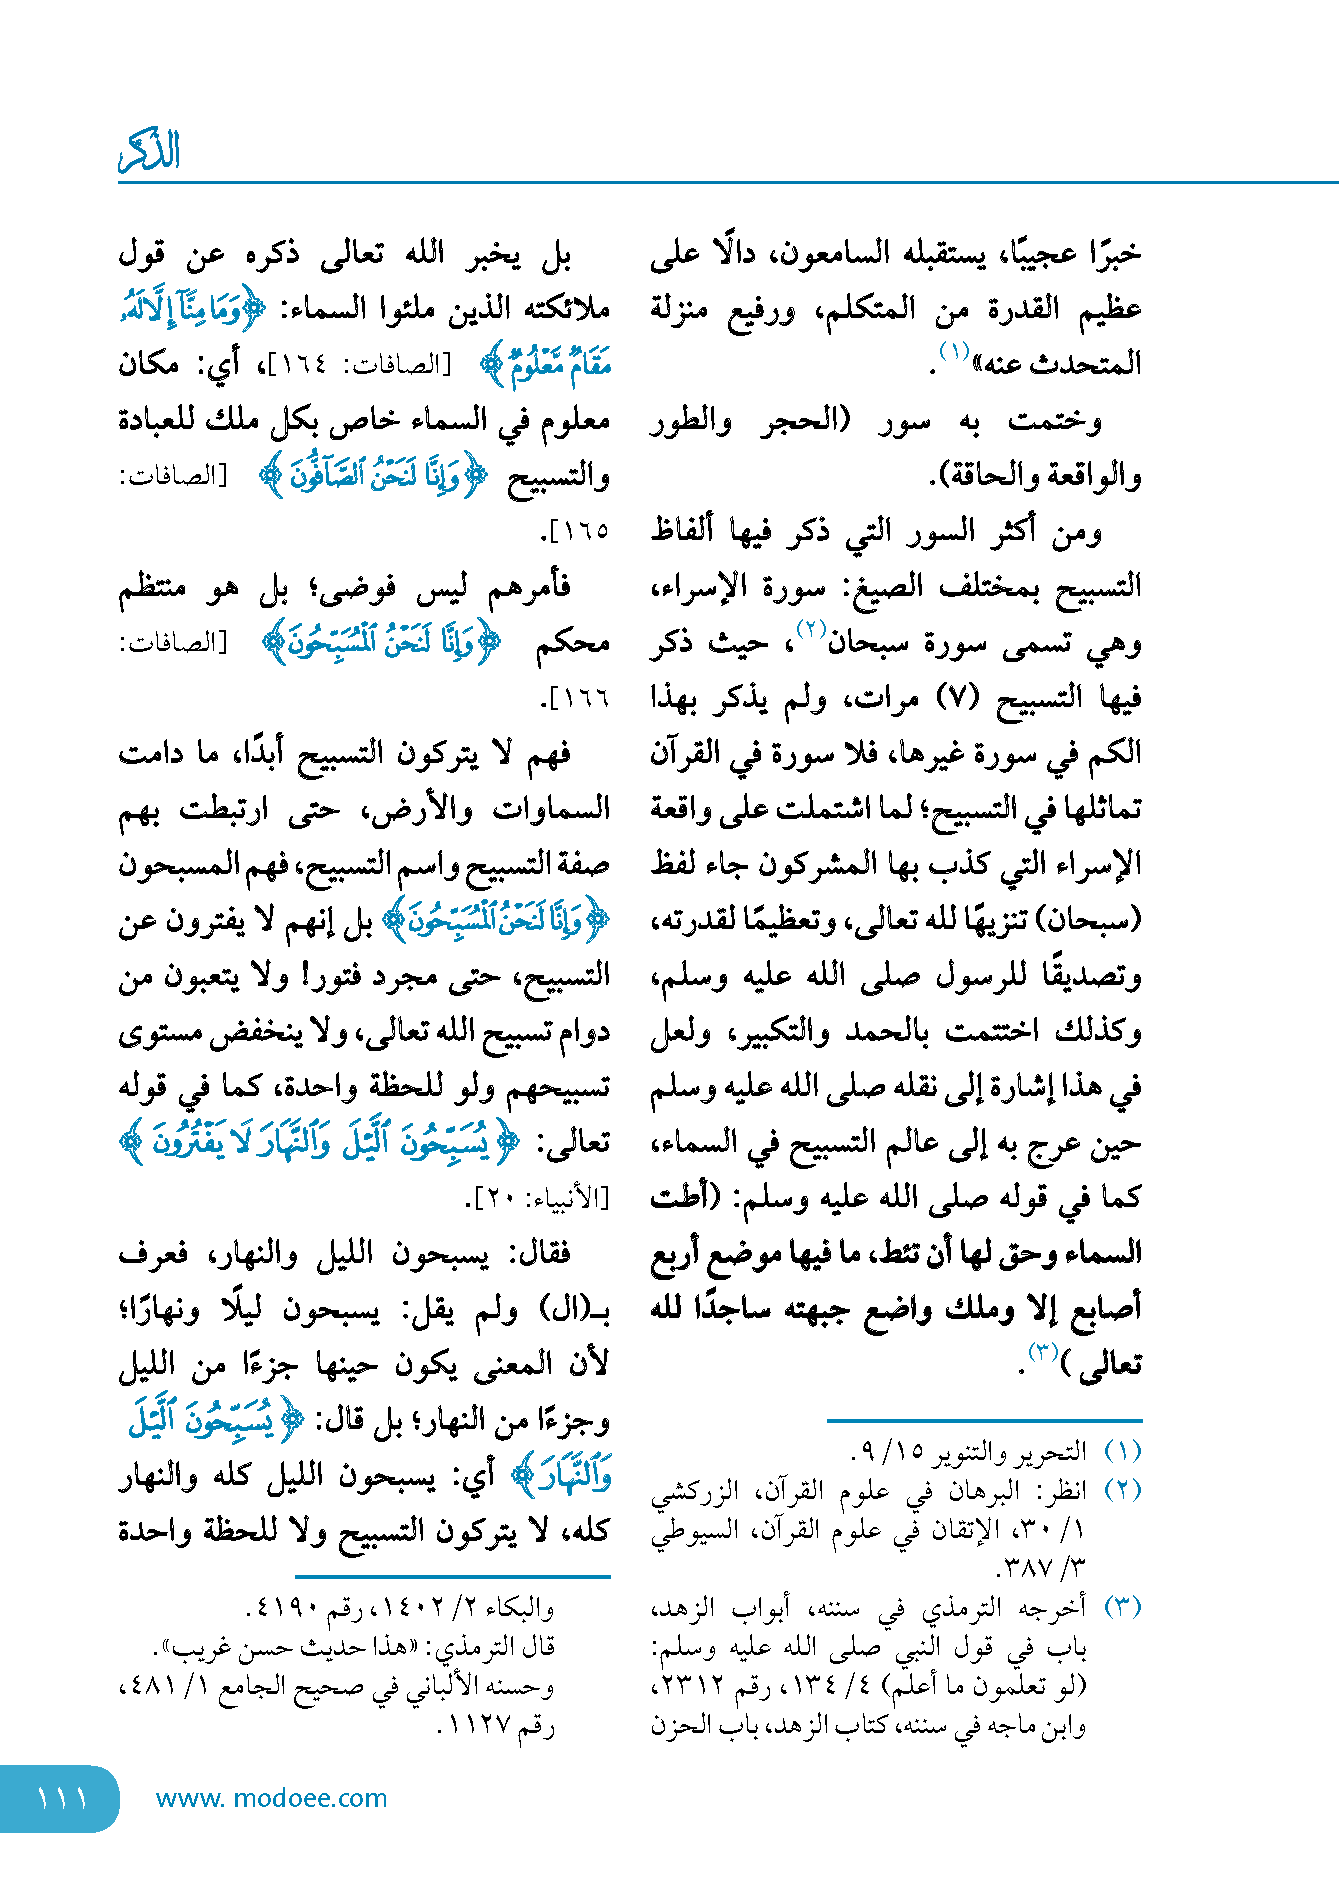 الذكر
خبرًا عجيبًا، يستقبله السامعون، دالًا على
عظيم القدرة من المتكلم، ورفيع منزلة
المتحدث عنه»(١).
وختمت به سور (الحجر والطور
والواقعة والحاقة).
ومن أكثر السور التي ذكر فيها ألفاظ
التسبيح بمختلف الصيغ: سورة الإسراء،
وهي تسمى سورة سبحان(٢)، حيث ذكر
فيها التسبيح (٧) مرات، ولم يذكر بهذا
الكم في سورة غيرها، فلا سورة في القرآن
تماثلها في التسبيح؛ لما اشتملت على واقعة
الإسراء التي كذب بها المشركون جاء لفظ
(سبحان) تنزيهًا لله تعالى، وتعظيمًا لقدرته،
وتصديقًا للرسول صلى الله عليه وسلم،
وكذلك اختتمت بالحمد والتكبير، ولعل
في هذا إشارة إلى نقله صلى الله عليه وسلم
حين عرج به إلى عالم التسبيح في السماء،
كما في قوله صلى الله عليه وسلم: (أطت
السماء وحق لها أن تئط، ما فيها موضع أربع
أصابع إلا وملك واضع جبهته ساجدًا لله
تعالى)(٣).
(١) التحرير والتنوير ١٥/ ٩.
(٢) انظر: البرهان في علوم القرآن، الزركشي
١/ ٣٠، الإتقان في علوم القرآن، السيوطي
٣/ ٣٨٧.
(٣) أخرجه الترمذي في سننه، أبواب الزهد،
باب في قول النبي صلى الله عليه وسلم:
(لو تعلمون ما أعلم) ٤/ ١٣٤، رقم ٢٣١٢،
وابن ماجه في سننه، كتاب الزهد، باب الحزن
بل يخبر الله تعالى ذكره عن قول
ملائكته الذين ملئوا السماء: ﴿وَمَا مِنَّآ إِلَّا لَهُۥ
مَقَامٌ مَّعْلُومٌ﴾ [الصافات: ١٦٤]، أي: مكان
معلوم في السماء خاص بكل ملك للعبادة
والتسبيح ﴿وَإِنَّا لَنَحْنُ ٱلصَّآفُّونَ﴾ [الصافات:
١٦٥].
فأمرهم ليس فوضى؛ بل هو منتظم
محكم ﴿وَإِنَّا لَنَحْنُ ٱلْمُسَبِّحُونَ﴾ [الصافات:
١٦٦].
فهم لا يتركون التسبيح أبدًا، ما دامت
السماوات والأرض، حتى ارتبطت بهم
صفة التسبيح واسم التسبيح، فهم المسبحون
﴿وَإِنَّا لَنَحْنُ ٱلْمُسَبِّحُونَ﴾ بل إنهم لا يفترون عن
التسبيح، حتى مجرد فتور! ولا يتعبون من
دوام تسبيح الله تعالى، ولا ينخفض مستوى
تسبيحهم ولو للحظة واحدة، كما في قوله
تعالى: ﴿يُسَبِّحُونَ ٱلَّيْلَ وَٱلنَّهَارَ لَا يَفْتُرُونَ﴾
[الأنبياء: ٢٠].
فقال: يسبحون الليل والنهار، فعرف
بـ(ال) ولم يقل: يسبحون ليلًا ونهارًا؛
لأن المعنى يكون حينها جزءًا من الليل
وجزءًا من النهار؛ بل قال: ﴿يُسَبِّحُونَ ٱلَّيْلَ
وَٱلنَّهَارَ﴾ أي: يسبحون الليل كله والنهار
كله، لا يتركون التسبيح ولا للحظة واحدة
والبكاء ٢/ ١٤٠٢، رقم ٤١٩٠.
قال الترمذي: «هذا حديث حسن غريب».
وحسنه الألباني في صحيح الجامع ١/ ٤٨١،
رقم ١١٢٧.
www. modoee.com
١١١